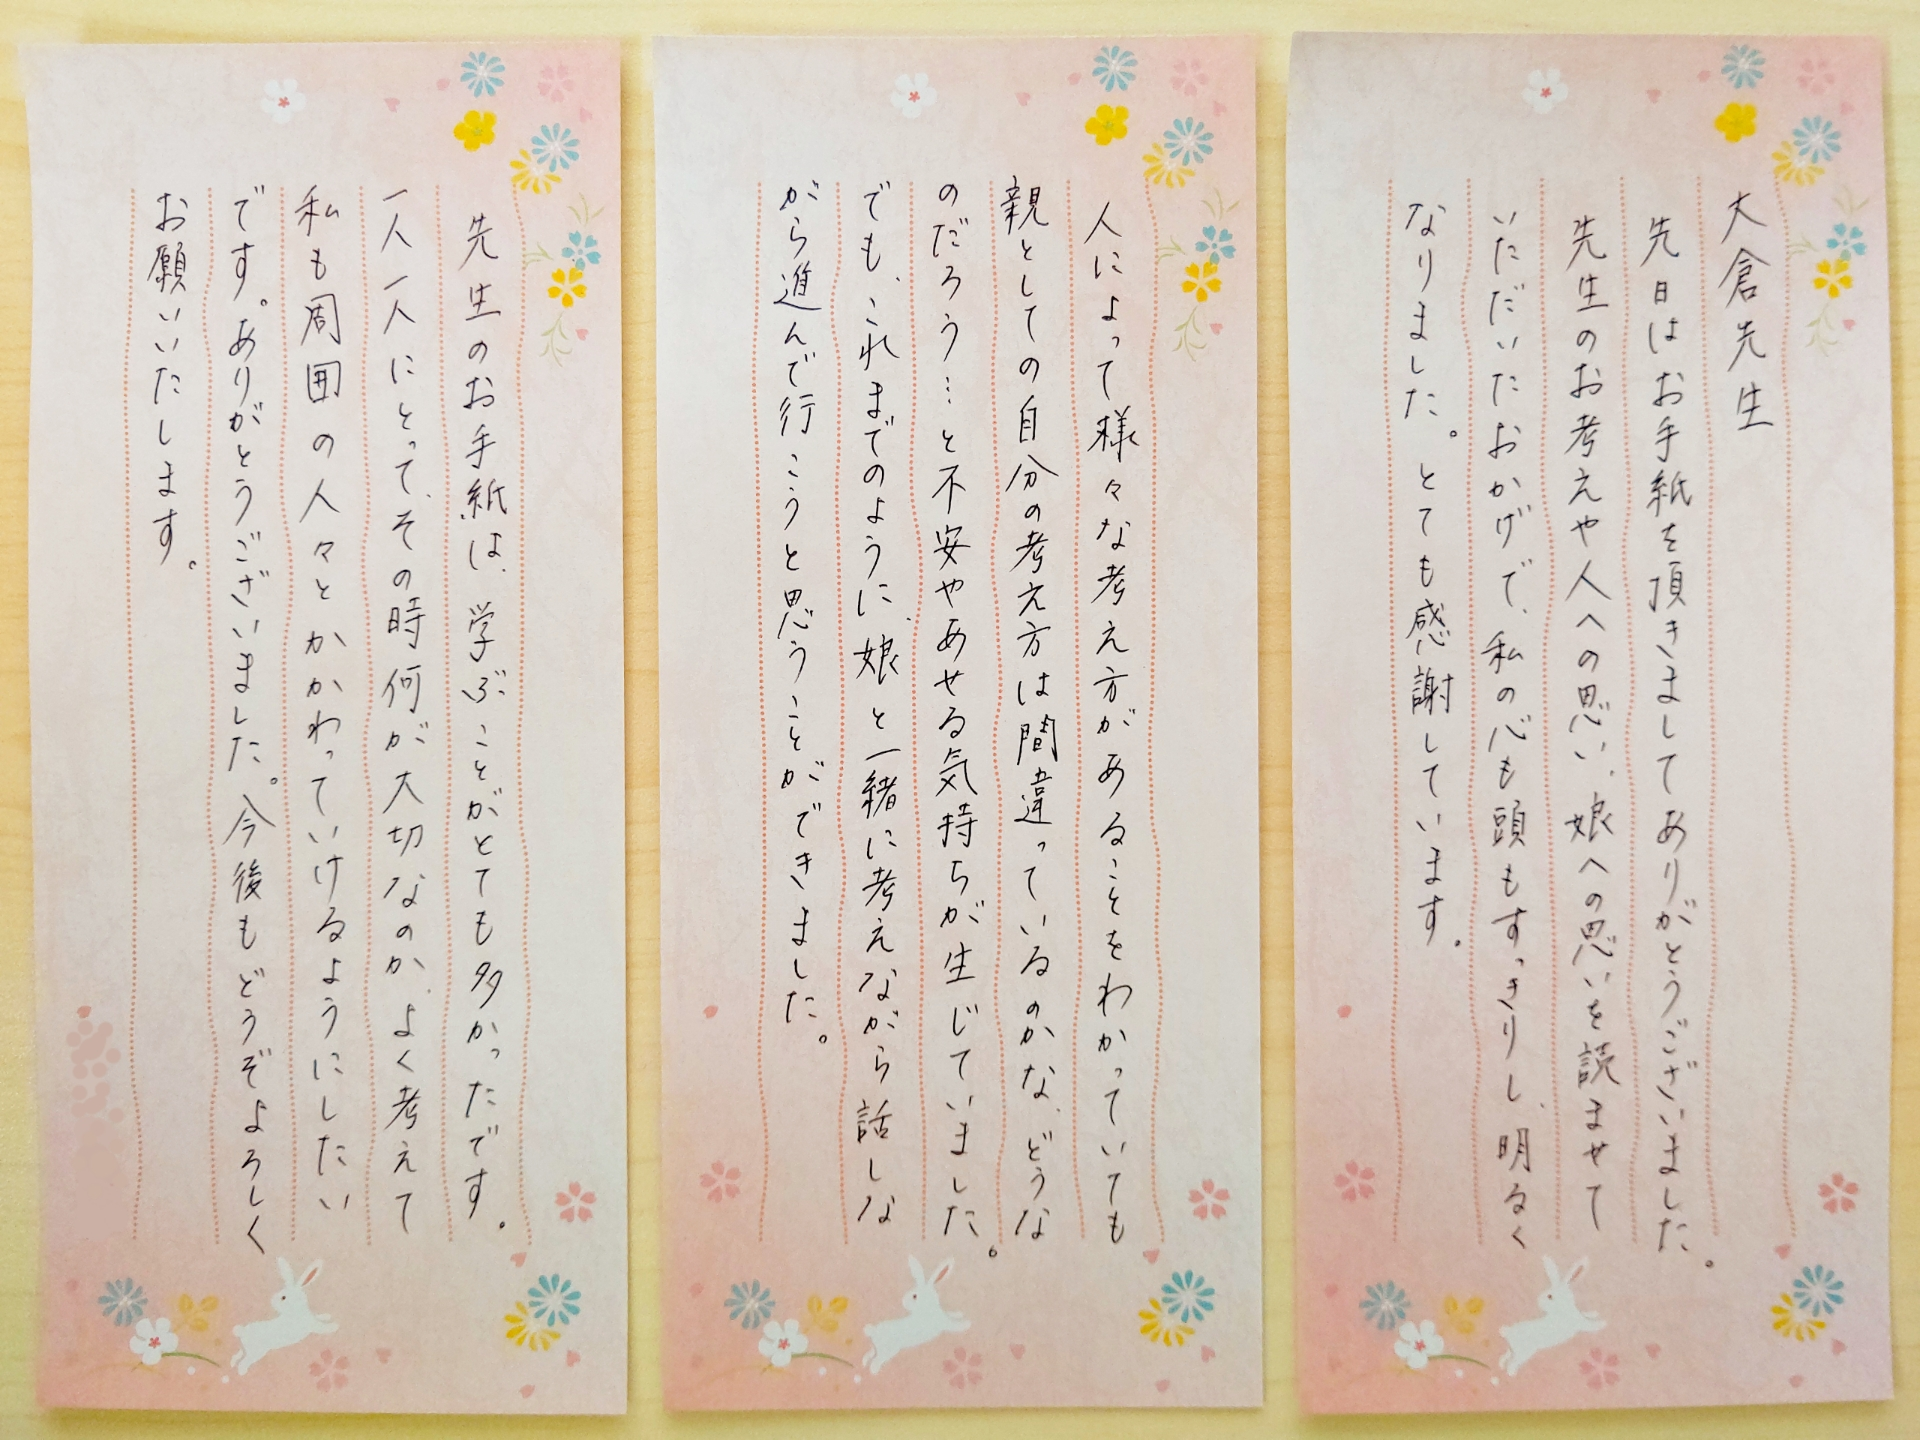 大倉先生
先日はお手紙を頂きましてありがとうございました。
先生のお考えや人への思い、娘への思いを読ませて
いただいたおかげで、私の心も頭もすっきりし、明るく
なりました。とても感謝しています。
人によって様々な考え方があることをわかっていても
親としての自分の考え方は間違っているのかな、どうな
のだろう…と不安やあせる気持ちが生じていました。
でも、これまでのように、娘と一緒に考えながら話しな
がら進んで行こうと思うことができました。
先生のお手紙は、学ぶことがとても多かったです。
一人一人にとって、その時何が大切なのか、よく考えて
私も周囲の人々とかかわっていけるようにしたい
です。ありがとうございました。今後もどうぞよろしく
お願いいたします。